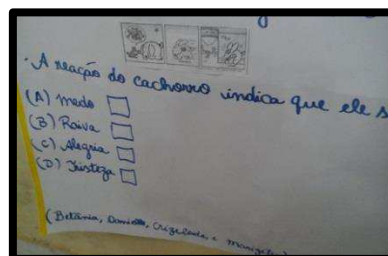 . A reação do cachorro indica que ele s
(A) medo
(B) Raiva
(C) Alegria
(D) Tristeza
(Betânia, Danielle, Crizelauda, e